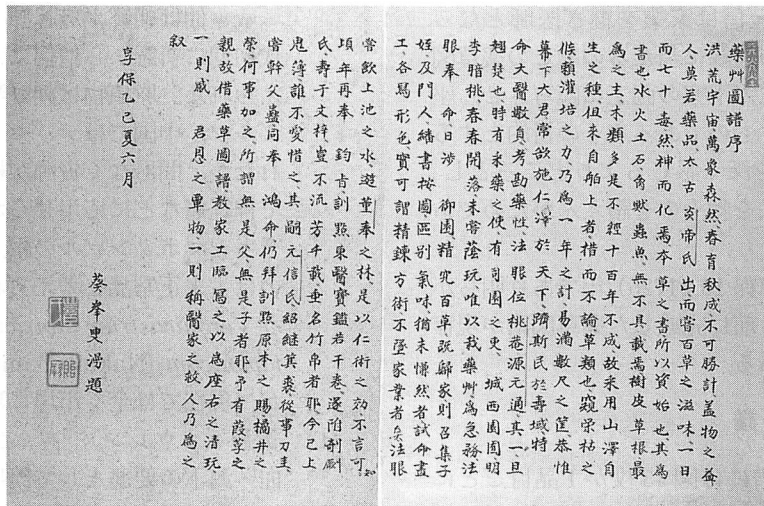 藥艸圖譜序
洪荒宇宙萬象森然春育秋成不可勝計蓋物之益
人莫若藥品太古炎帝氏出而嘗百草之滋味一日
而七十毒然神而化焉本草之書所以資始也其為
書也水火土石禽獸蟲魚無不具載焉樹皮草根最
為之主木類多是不經十百年不成故采用山澤自
生之種但來自舶上者措而不論草類也窺榮枯之
候賴灌培之力乃為一年之計易滿數尺之筐恭惟
幕下大君常欲施仁澤於天下躋斯民於壽域特
命大醫數員考勘藥性法眼位桃菴源元通其一且
翹楚也時有采藥之使有司園之吏城西園囿明
李暗桃春春開落未嘗蔭玩唯以栽藥艸為急務法
眼奉命日涉御園精究百草既歸家則召集子
姪及門人繙書按圖區別氣味猶未慊然者試命畫
工各寫形色寶可謂精鍊方術不墜家業者矣法眼
嘗飲上池之水遊董奉之林是以仁術之効不言可知
頃年再奉鈞旨訓點東醫寶鑑若干卷遂附剞劂
氏壽于文梓豈不流芳千載垂名竹帛者耶今已上
鬼簿誰不愛惜之其嗣元信氏紹継箕裘從事刀圭
嘗幹父蠱同奉鴻命仍拜訓點原本之賜橘井之
榮何事加之所謂無是父無是子者耶予有葭莩之
親故借藥草圖譜教家工臨寫之以為座右之清玩
一則感君恩之重物一則稱醫家之故人乃為之
叙
享保乙巳夏六月
葵峯叟澇題